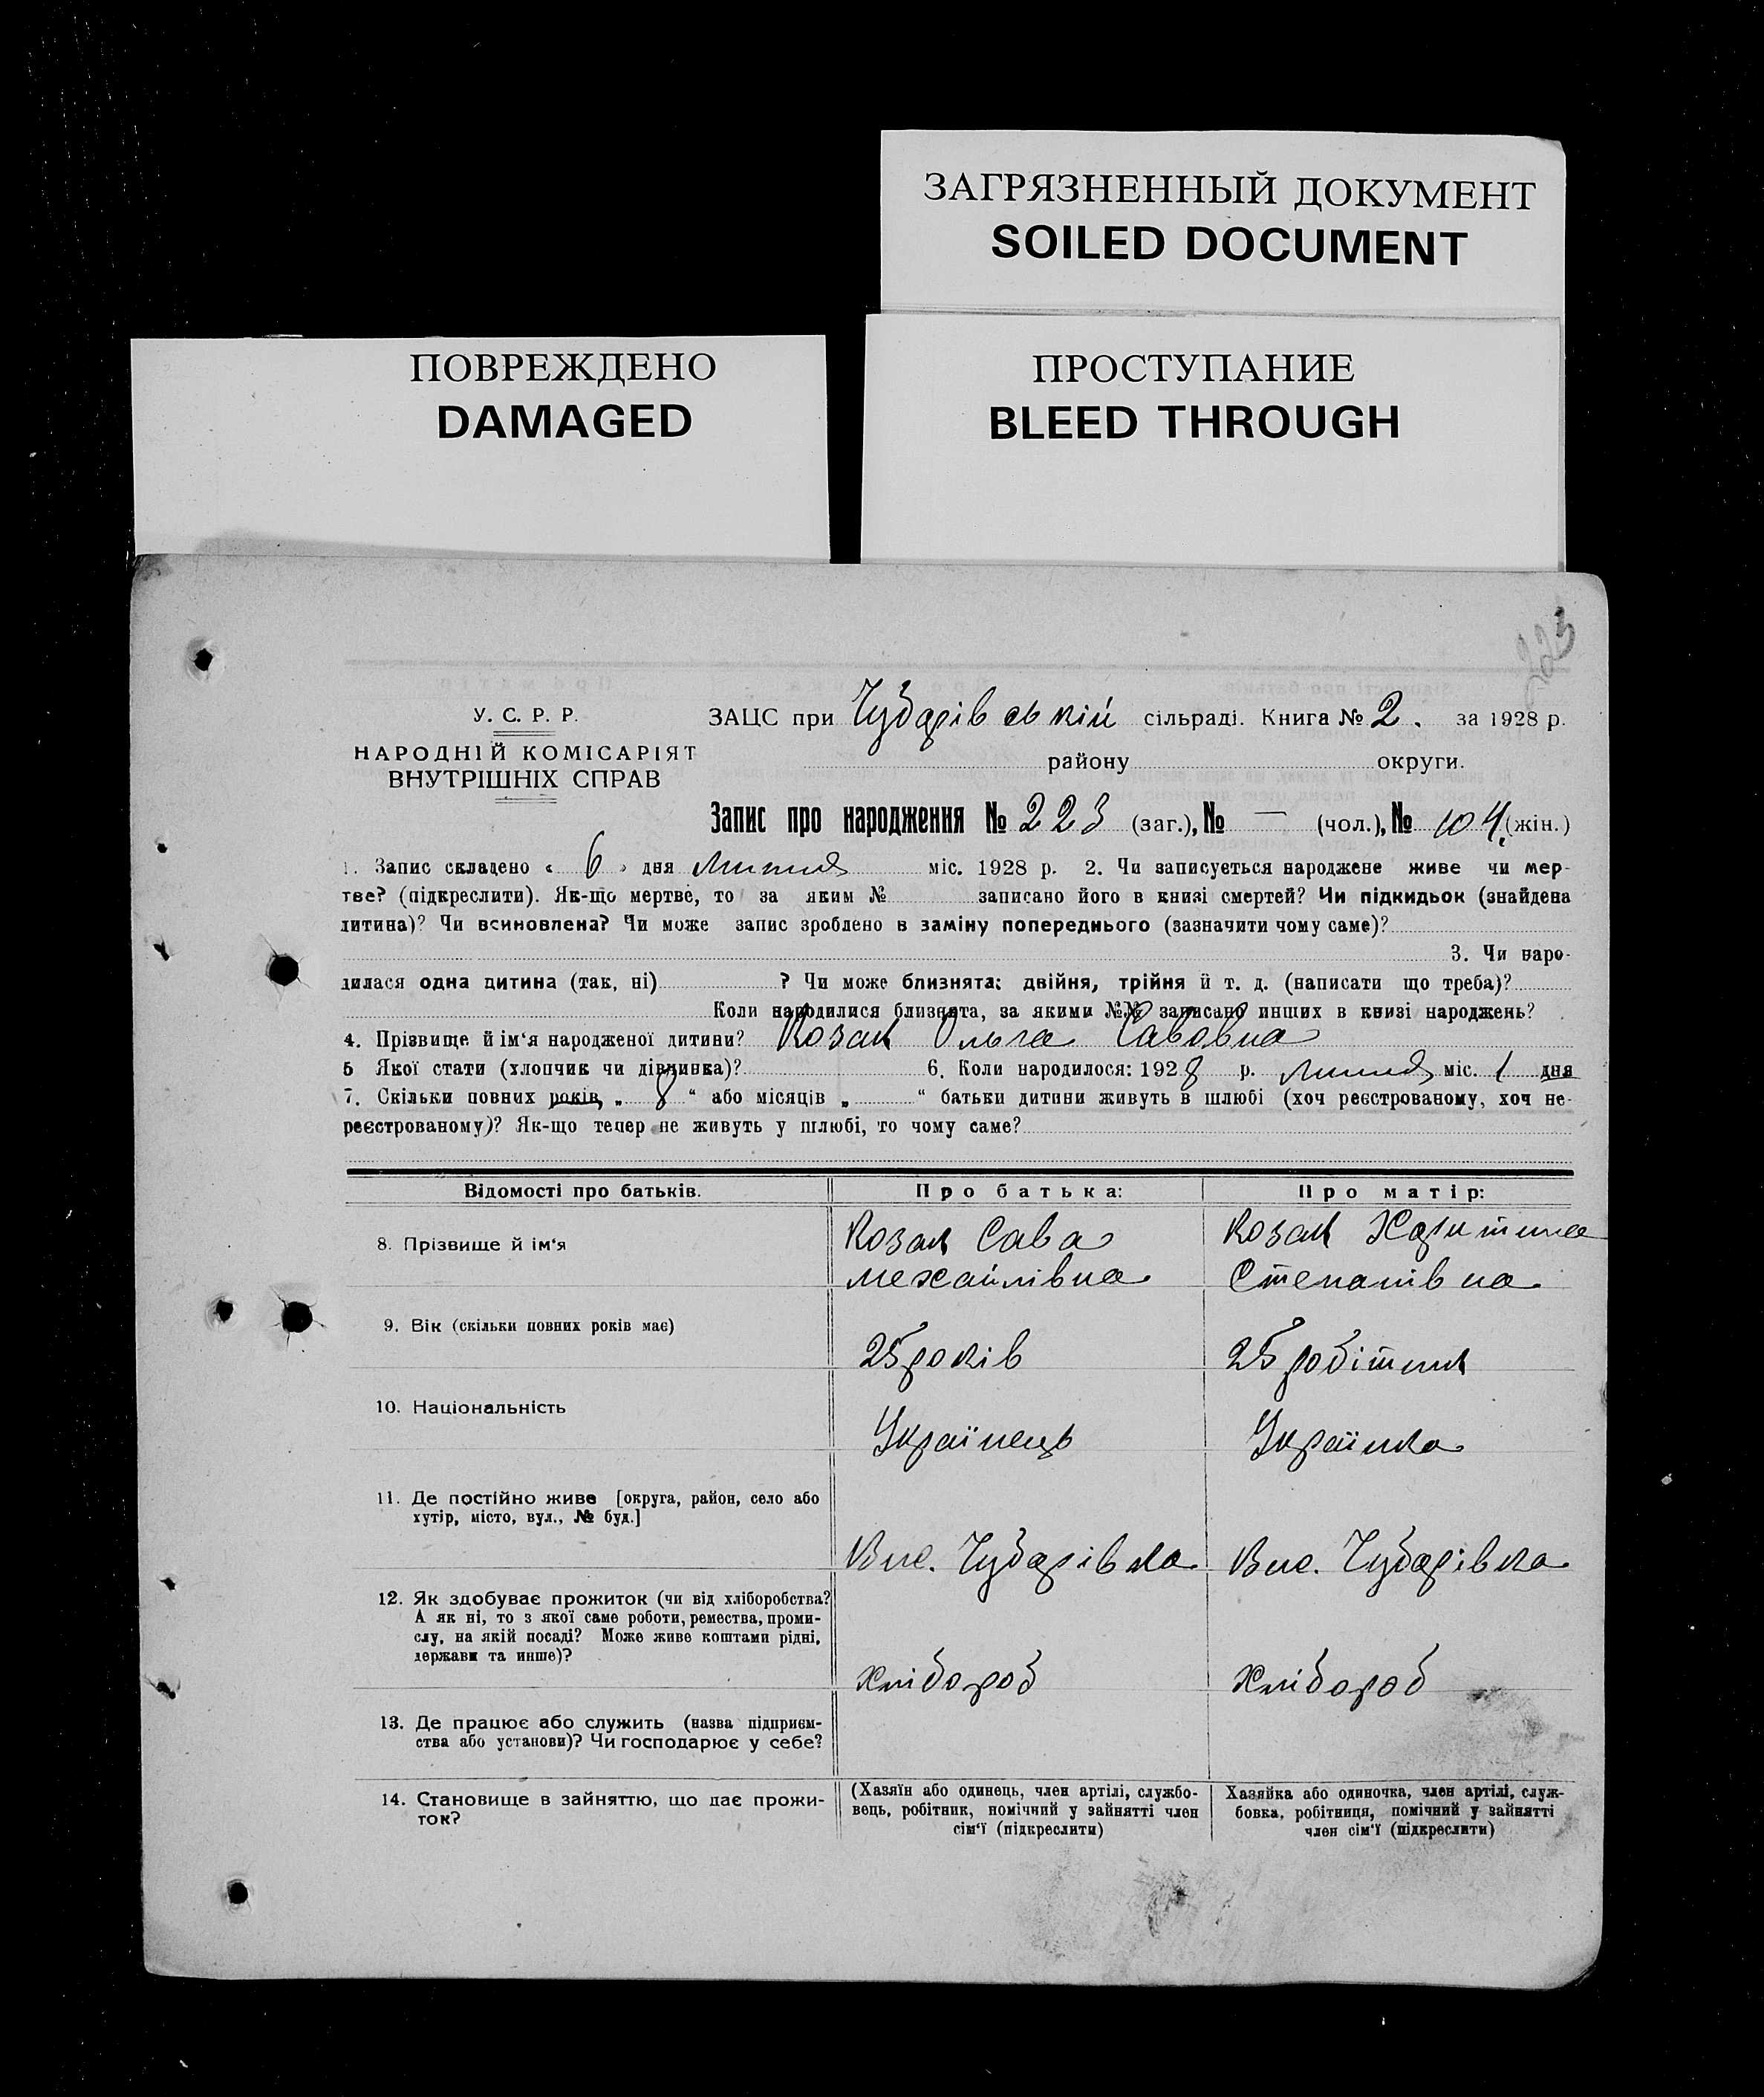 ЗАГРЯЗНЕННЫЙ ДОКУМЕНТ
SOILED DOCUMENT
ПОВРЕЖДЕНО
DAMAGED
ПРОСТУПАНИЕ
BLEED THROUGH
223
У. С. Р. Р.
НАРОДНІЙ КОМІСАРІЯТ
ВНУТРІШНІХ СПРАВ
ЗАЦС при Чубарівській сільраді. Книга № 2. за 1928 р.
району округи.
Запис про народження № 223 (заг.), № — (чол.), № 104 (жін.)
1. Запис складено « 6 » дня Липня міс. 1928 р. 2. Чи записується народжене живе чи мер-
тве? (підкреслити). Як-що мертве, то за яким № записано його в книзі смертей? Чи підкидьок (знайдена
дитина)? Чи всиновлена? Чи може запис зроблено в заміну попереднього (зазначити чому саме)?
3. Чи наро-
дилася одна дитина (так, ні) ? Чи може близнята: двійня, трійня й т. д. (написати що треба)?
Коли народилися близнята, за якими №№ записано инших в книзі народжень?
4. Прізвище й ім‘я народженої дитини? Козак Ольга Савовна
5 Якої стати (хлопчик чи дівчинка)? 6. Коли народилося: 1928 р. Липня міс. 1 дня
7. Скільки повних років, „ 8 “ або місяців „ “ батьки дитини живуть в шлюбі (хоч реєстрованому, хоч не-
реєстрованому)? Як-що тепер не живуть у шлюбі, то чому саме?
Відомості про батьків. Про батька: Про матір:
8. Прізвище й ім‘я Козак Сава Козак Харитина
Михайлівна Степанівна
9. Вік (скільки повних років має)
25 років 25 робітник
10. Національність
Українець Українка
11. Де постійно живе [округа, район, село або
хутір, місто, вул., № буд.]
Вис. Чубарівка Вис. Чубарівка
12. Як здобуває прожиток (чи від хліборобства?
А як ні, то з якої саме роботи, ремества, проми-
слу, на якій посаді? Може живе коштами рідні,
держави та инше)?
хлібороб хлібороб
13. Де працює або служить (назва підприєм-
ства або установи)? Чи господарює у себе?
14. Становище в зайняттю, що дає прожи-
ток?
(Хазяїн або одинець, член артілі, службо-
вець, робітник, помічний у зайнятті член
сім‘ї (підкреслити)
Хазяйка або одиночка, член артілі, служ-
бовка, робітниця, помічний у зайнятті
член сім‘ї (підкреслити)